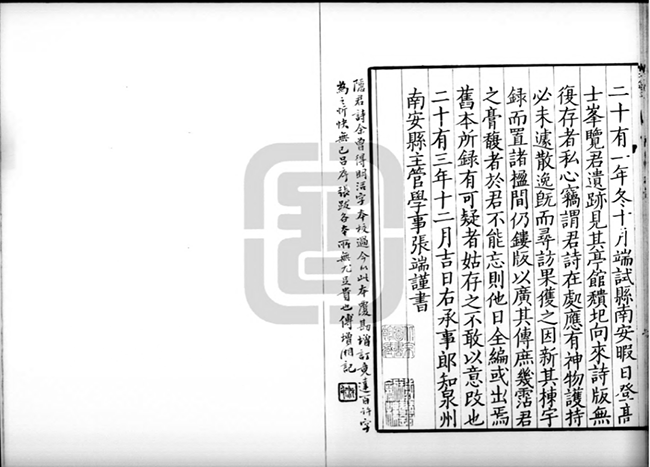 二十有一年冬十月端試縣南安暇日登高
士峯覽君遺跡見其亭館積圮向來詩版無
復存者私心竊謂君詩在處應有神物護持
必未遽散逸既而尋訪果獲之因新其棟宇
録而置諸楹間仍鏤版以廣其傳庶幾霑君
之膏馥者於君不能忘則他日全編或出焉
舊本所録有可疑者姑存之不敢以意改也
二十有三年十二月吉日右承事郎知泉州
南安縣主管學事張端謹書
隱君詩余曾得明活字本校過今以此本覆勘增訂竟達百許字
為之忻快無已呂序張跋各本所無尤足貴也傅增湘記